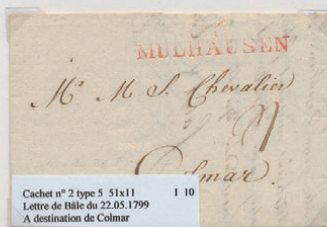 MULHAUSEN
Mr. M S. Chevalier
Colmar.
Cachet n° 2 type 5 51x11 I 10
Lettre de Bâle du 22.05.1799
A destination de Colmar